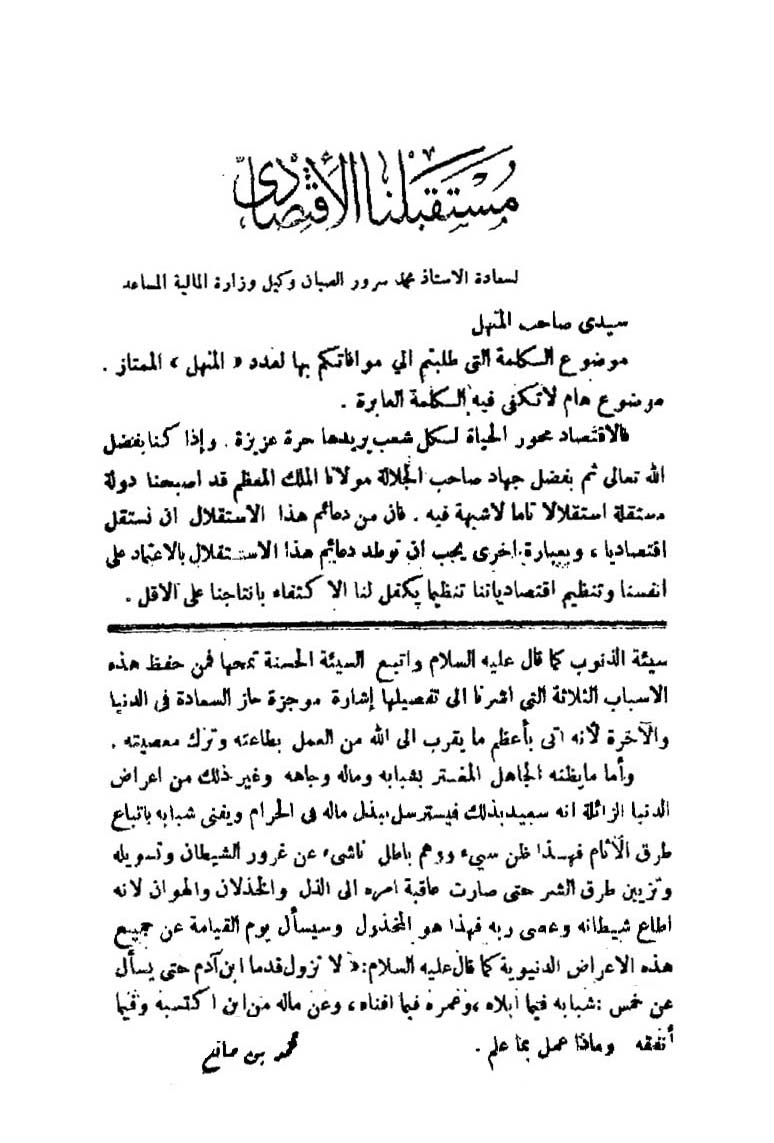 مستقبلنا الاقتصادي
لسعادة الاستاذ محمد سرور الصبان وكيل وزارة المالية المساعد
سيدى صاحب المنهل
موضوع الكلمة التى طلبتم الي موافاتكم بها لعدد « المنهل » الممتاز .
موضوع هام لاتكفى فيه الكلمة العابرة .
فالاقتصاد محور الحياة لكل شعب يريدها حرة عزيزة . وإذا كنا بفضل
الله تعالى ثم بفضل جهاد صاحب الجلالة مولانا الملك المعظم قد اصبحنا دولة
مستقلة استقلالا تاما لاشبهة فيه . فان من دعائم هذا الاستقلال ان نستقل
اقتصاديا ، وبعبارة اخرى يجب ان نوطد دعائم هذا الاستقلال بالاعتماد على
انفسنا وتنظيم اقتصادياتنا تنظيما يكفل لنا الاكتفاء بانتاجنا على الاقل .
سيئة الذنوب كما قال عليه السلام واتبع السيئة الحسنة تمحها فمن حفظ هذه
الاسباب الثلاثة التي اشرنا الى تفصيلها إشارة موجزة حاز السعادة فى الدنيا
والآخرة لأنه اتى بأعظم ما يقرب الى الله من العمل بطاعته وترك معصيته .
وأما مايظنه الجاهل المغتر بشبابه وماله وجاهه وغير ذلك من اعراض
الدنيا الزائلة انه سعيد بذلك فيسترسل ببذل ماله فى الحرام ويفنى شبابه باتباع
طرق الآثام فهذا ظن سيء ووهم باطل ناشىء عن غرور الشيطان وتسويله
وتزيين طرق الشر حتى صارت عاقبة امره الى الذل والخذلان والهوان لانه
اطاع شيطانه وعصى ربه فهذا هو المخذول وسيسأل يوم القيامة عن جميع
هذه الاعراض الدنيوية كما قال عليه السلام : « لا تزول قدما ابن آدم حتى يسأل
عن خمس : شبابه فيما ابلاه ، وعمره فيما افناه ، وعن ماله من اين اكتسبه وفيما
أنفقه وماذا عمل بما علم .
محمد بن مانع